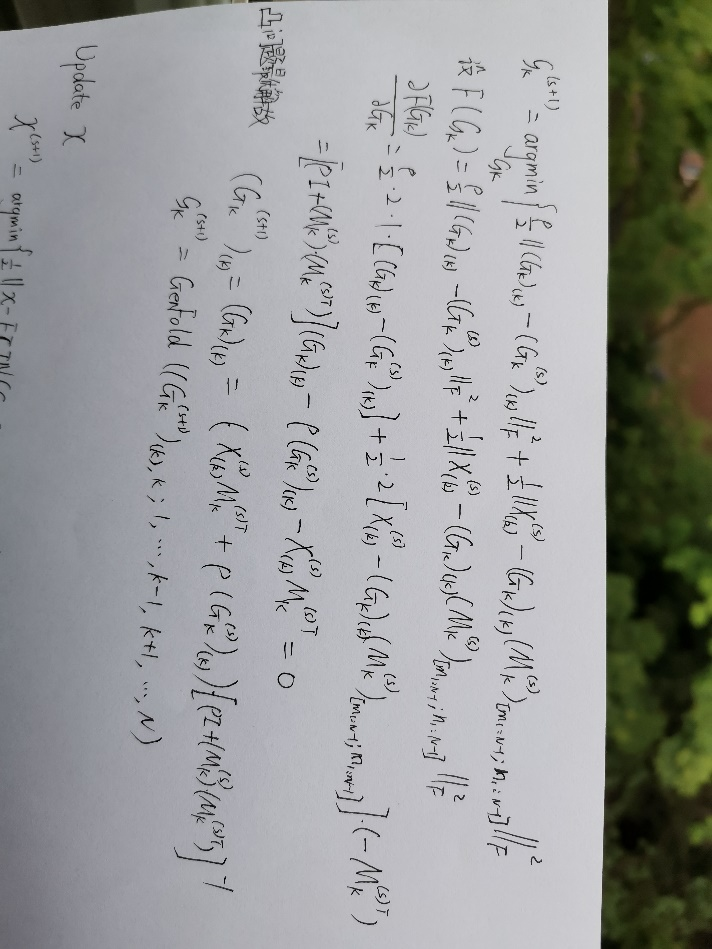 G_k^{(s+1)} = argmin_{G_k} { ρ/2 ||(G_k)_{(k)} - (G_k^{(s)})_{(k)}||_F^2 + 1/2 ||X_{(k)}^{(s)} - (G_k)_{(k)} (M_k^{(s)})_{[m_{1:N-1}; n_{1:N-1}]}||_F^2
设 F(G_k) = ρ/2 ||(G_k)_{(k)} - (G_k^{(s)})_{(k)}||_F^2 + 1/2 ||X_{(k)}^{(s)} - (G_k)_{(k)} (M_k^{(s)})_{[m_{1:N-1}; n_{1:N-1}]}||_F^2
∂F(G_k)/∂G_k = ρ/2 · 2 · 1 · [(G_k)_{(k)} - (G_k^{(s)})_{(k)}] + 1/2 · 2 [X_{(k)}^{(s)} - (G_k)_{(k)} (M_k^{(s)})_{[m_{1:N-1}; n_{1:N-1}]}] · (-M_k^{(s)T})
= [ρI + (M_k^{(s)})(M_k^{(s)T})](G_k)_{(k)} - ρ(G_k^{(s)})_{(k)} - X_{(k)}^{(s)} M_k^{(s)T} = 0
凸问题
(G_k^{(s+1)})_{(k)} = (G_k)_{(k)} = (X_{(k)}^{(s)} M_k^{(s)T} + ρ(G_k^{(s)})_{(k)}) [ρI + (M_k^{(s)})(M_k^{(s)T})]^{-1}
G_k^{(s+1)} = GenFold((G_k^{(s+1)})_{(k)}, k; 1, ..., k-1, k+1, ..., N)
Update X
X^{(s+1)} = argmin { 1/2 ||X - FCTN(G